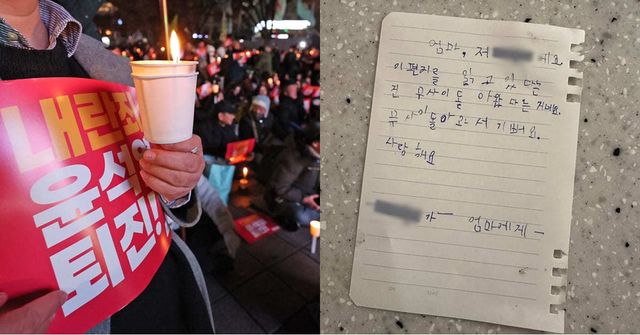 내란죄
윤석열
퇴진!
엄마, 저 에요.
이 편지를 읽고 있다는
건 무사이 돌아왔다는 거네요.
무사이 돌아 기뻐요.
사랑해요
가 — 엄마에게 —